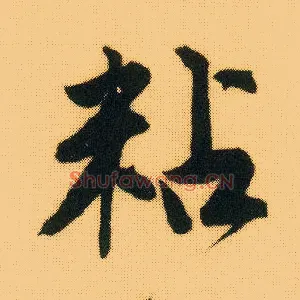 粘
Shufawang.CN